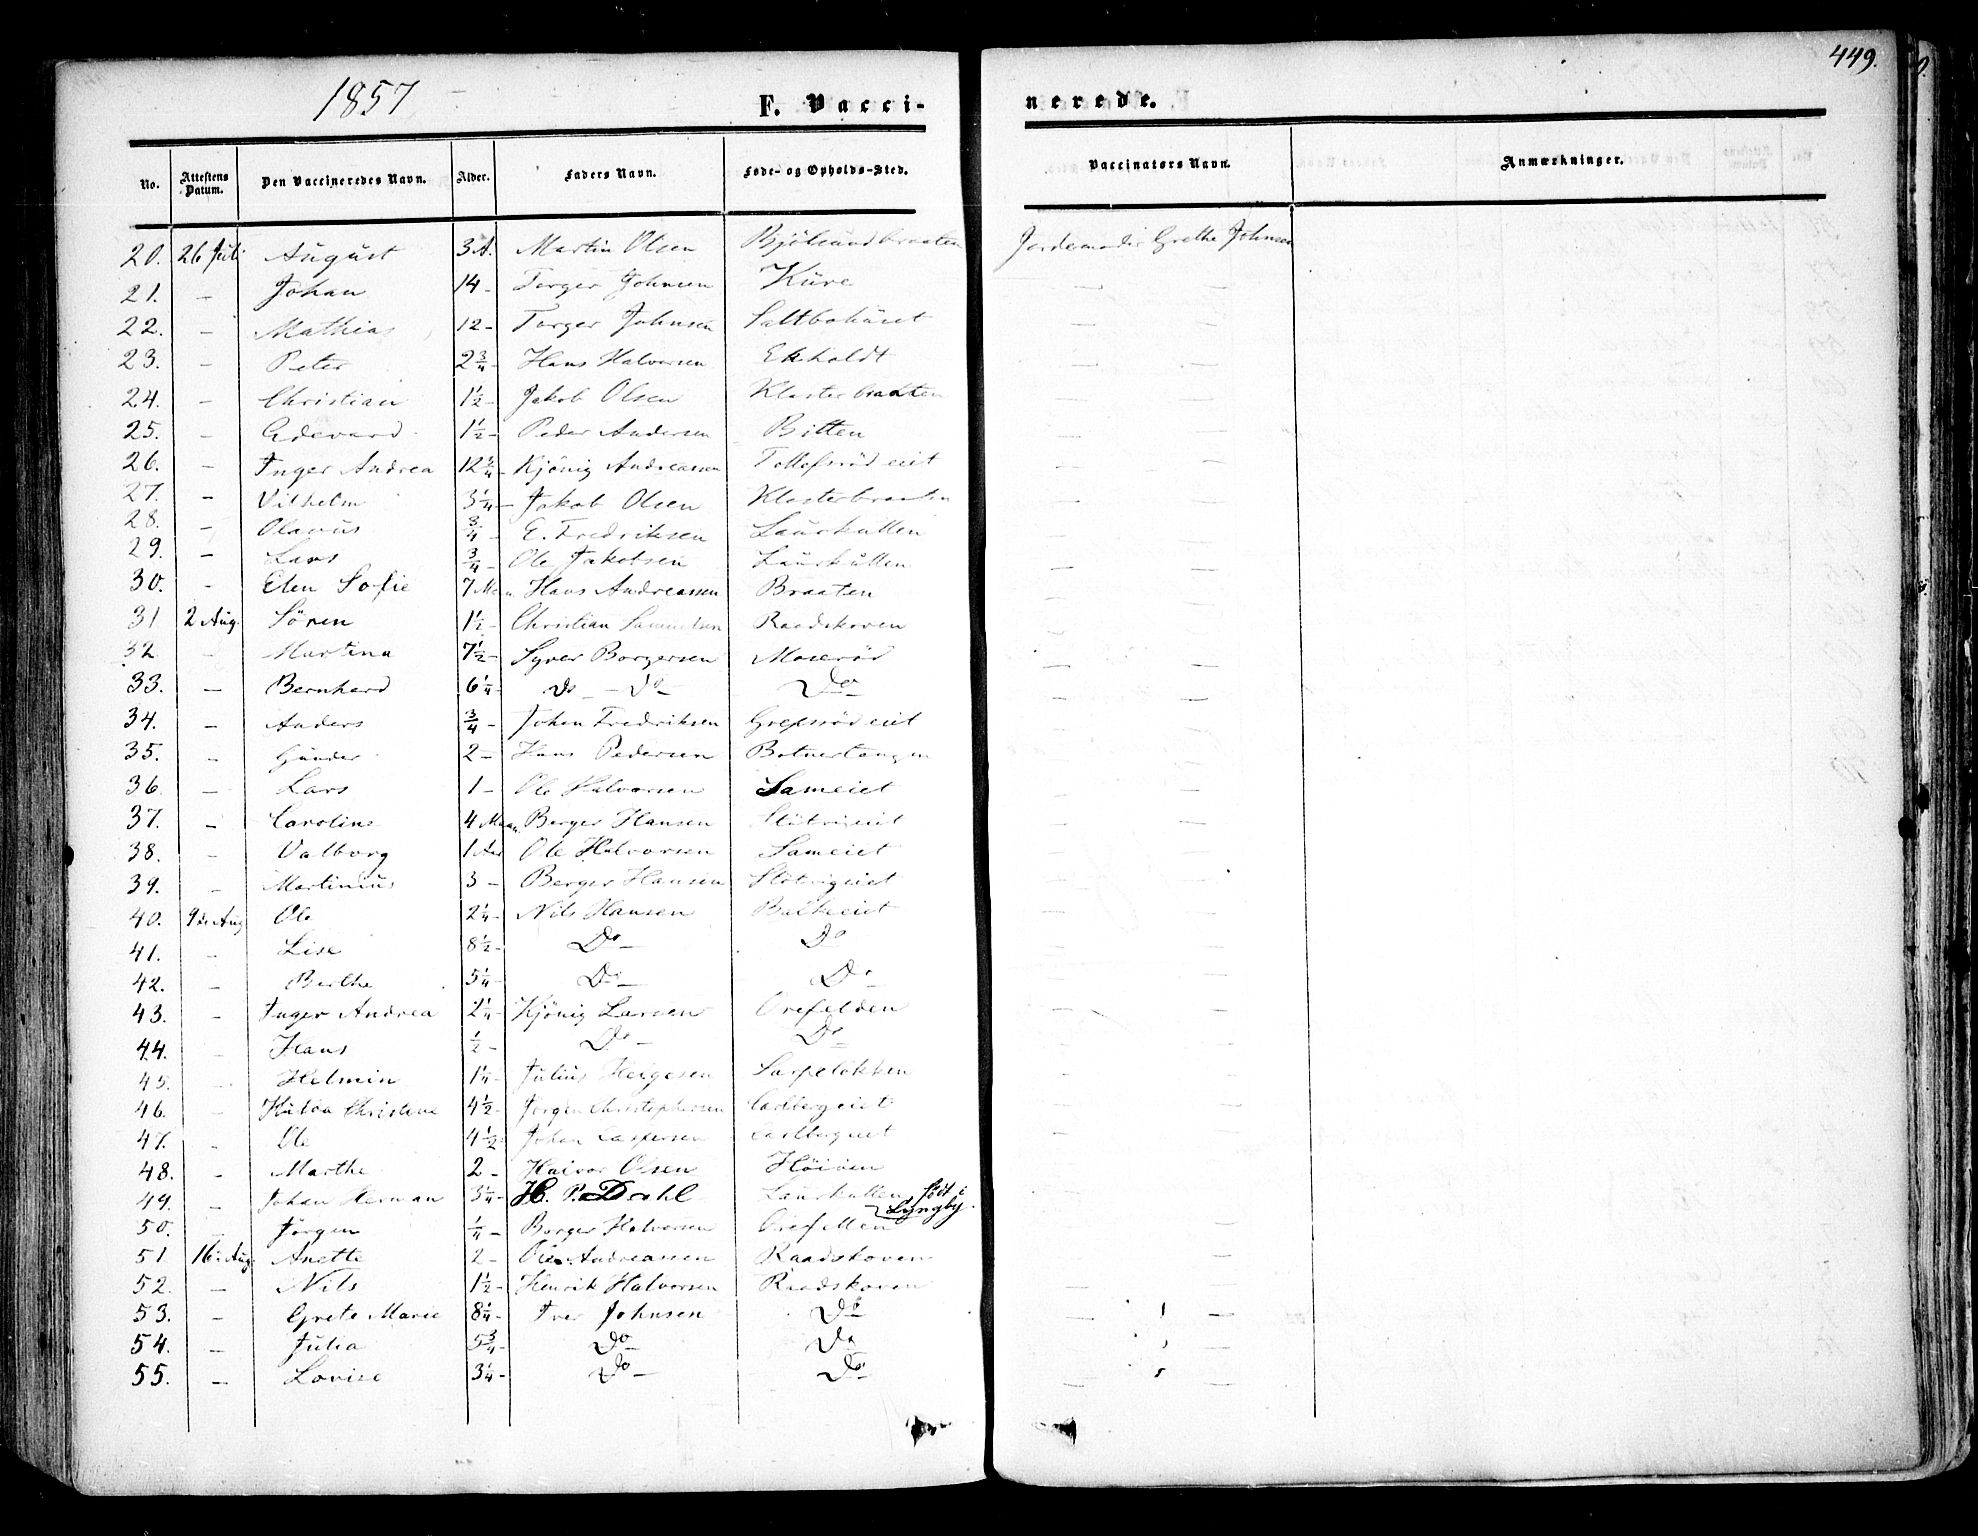 1857
F. Vacci-
nerede.
449.
No. Attestens Datum. Den Vaccineredes Navn. Alder. Faders Navn. Føde- og Opholds-Sted. Vaccinators Navn. Anmærkninger.
20. 26 Juli August 3 A. Martin Olsen Bjölsundbraaten Jordemoder Grethe Johnsen
21. – Johan 14 – Torger Johnsen Kure — —
22. – Mathias 12 – Torger Johnsen Saltbohüset — —
23. – Peter 2 3/4 – Hans Halvorsen Ekholdt — —
24. – Christian 1 1/2 – Jakob Olsen Klosterbraaten — —
25. – Edevard 1 1/2 – Peder Andersen Bitten — —
26. – Inger Andrea 12 1/4 – Kjönig Andreassen Tollefsröd eiet — —
27. – Vilhelm 3 1/4 – Jakob Olsen Klosterbraaten — —
28. – Olavus 3/4 – E. Fredriksen Laurkullen — —
29. – Lars 3/4 – Ole Jakobsen Laurkullen — —
30. – Elen Sofie 7 Maan Hans Andreassen Braaten — —
31 2 Aug. Sören 1 1/2 – Christian Samuelsen Raadskoven — —
32 – Martina 7 1/2 – Syver Borgersen Moseröd — —
33. – Bernhard 6 1/4 – Do – Do – Do — —
34. – Anders 3/4 – Johan Fredriksen Grefsröd eiet — —
35. – Gunder 2 – Hans Pedersen Botnertangen — —
36. – Lars 1 – Ole Halvorsen Sameiet — —
37. – Caroline 4 Maan. Berger Hansen Slötvigeiet — —
38. – Valborg 1 Aar Ole Halvorsen Sameiet — —
39. – Martinius 3 – Berger Hansen Slötvigeiet — —
40. 9de Aug Ole 2 1/4 – Nils Hansen Balkeeiet — —
41. – Lise 8 1/2 – Do – Do — —
42. – Berthe 5 1/4 – Do – Do — —
43. – Inger Andrea 2 1/4 – Kjönig Larsen Orefelden — —
44. – Hans 1/2 – Do – Do — —
45. – Helmin 1 1/4 – Julius Helgesen Sarpelökken — —
46. – Hulda Christine 4 1/2 – Jörgen Christophersen Carlbergeiet — —
47. – Ole 4 1/2 – Johan Caspersen Carlbergeiet — —
48. – Marthe 2 – Halvor Olsen Höiden — —
49. – Johan Herman 3 1/4 – H. P. Dahl Laurkullen, föd i Lyngby. — —
50. – Jörgen 1/4 – Borger Halvorsen Orefellen — —
51 16. Aug. Anette 2 – Ole Andreassen Raadskoven — —
52. – Nils 1 1/2 – Henrik Halvorsen Raadskoven — —
53. – Grete Marie 8 1/4 – Iver Johnsen Do — —
54. – Julia 5 3/4 – Do Do — —
55. – Lovise 3 1/4 – Do – Do — —